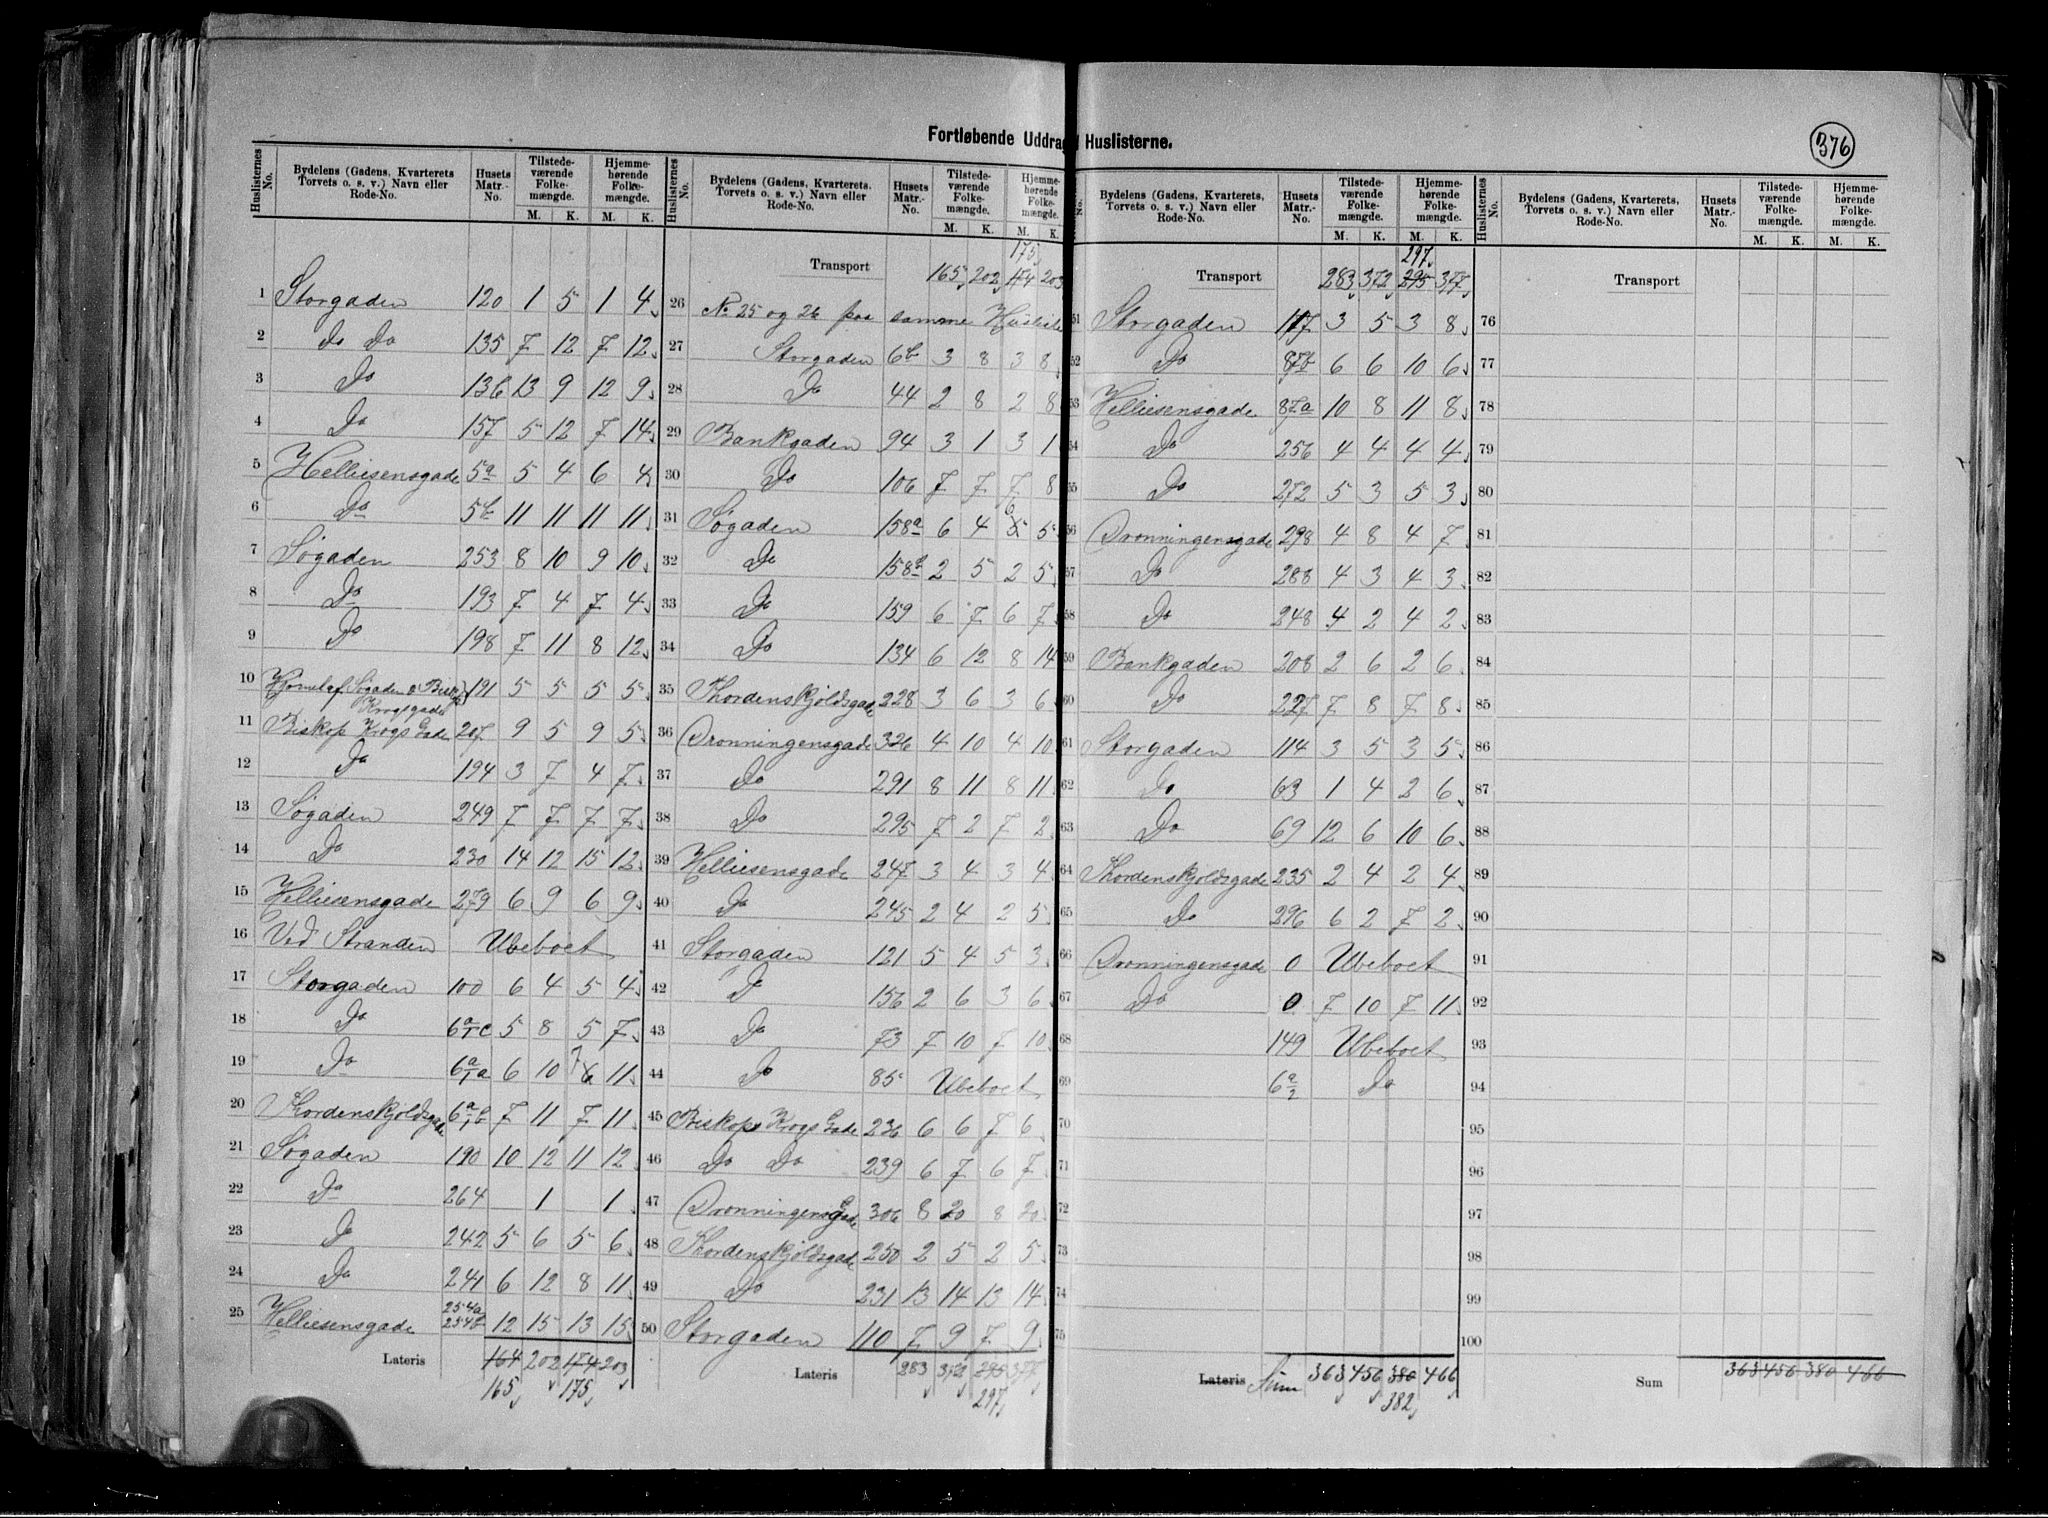 Fortløbende Uddrag Huslisterne.
376
Huslisternes No. | Bydelens (Gadens, Kvarterets Torvets o. s. v.) Navn eller Rode-No. | Husets Matr.-No. | Tilstedeværende Folkemængde. M. K. | Hjemmehørende Folkemængde. M. K.
1 Storgaden 120 1 5 1 4
2 Do Do 135 7 12 7 12
3 Do 136 13 9 12 9
4 Do 157 5 12 7 14
5 Helliesensgade 5a 5 4 6 4
6 Do 5b 11 11 11 11
7 Søgaden 253 8 10 9 10
8 Do 193 7 4 7 4
9 Do 198 7 11 8 12
10 Hjørnet af Søgaden & Bisk. Krogsgade 191 5 5 5 5
11 Biskop Krogs Gade 207 9 5 9 5
12 Do 194 3 7 4 7
13 Søgaden 249 7 7 7 7
14 Do 230 14 12 15 12
15 Helliesensgade 279 6 9 6 9
16 Ved Stranden Ubeboet
17 Storgaden 100 6 4 5 4
18 Do 6a/1c 5 8 5 7
19 Do 6a/1a 6 10 7 6 11
20 Thordenskjoldsgade 6a/1b 7 11 7 11
21 Søgaden 190 10 12 11 12
22 Do 264 1 1
23 Do 242 5 6 5 6
24 Do 241 6 12 8 11
25 Helliesensgade 254a 254b 12 15 13 15
Lateris 164 202 174 203
165 175
Huslisternes No. | Bydelens (Gadens, Kvarterets, Torvets o. s. v.) Navn eller Rode-No. | Husets Matr.-No. | Tilstedeværende Folkemængde. M. K. | Hjemmehørende Folkemængde. M. K.
175
Transport 165 202 174 203
26 No 25 og 26 paa samme Husliste
27 Storgaden 6b 3 8 3 8
28 Do 44 2 8 2 8
29 Bankgaden 94 3 1 3 1
30 Do 106 7 7 7 8
31 Søgaden 158a 6 4 6 5 5
32 Do 158b 2 5 2 5
33 Do 159 6 7 6 7
34 Do 134 6 12 8 14
35 Thordenskjoldsgade 228 3 6 3 6
36 Dronningensgade 326 4 10 4 10
37 Do 291 8 11 8 11
38 Do 295 7 2 7 2
39 Helliesensgade 247 3 4 3 4
40 Do 245 2 4 2 5
41 Storgaden 121 5 4 5 3
42 Do 156 2 6 3 6
43 Do 73 7 10 7 10
44 Do 85 Ubeboet
45 Biskop Krogs Gade 236 6 6 7 6
46 Do Do 239 6 7 6 7
47 Dronningens Gade 306 8 20 8 20
48 Thordenskjoldsgade 250 2 5 2 5
49 Do 231 13 14 13 14
50 Storgaden 110 7 9 7 9
Lateris 283 372 295 377
297
No. | Bydelens (Gadens, Kvarterets, Torvets o. s. v.) Navn eller Rode-No. | Husets Matr.-No. | Tilstedeværende Folkemængde. M. K. | Hjemmehørende Folkemængde. M. K.
297
Transport 283 372 295 377
51 Storgaden 117 3 5 3 8
52 Do 87b 6 6 10 6
53 Helliesensgade 87a 10 8 11 8
54 Do 256 4 4 4 4
55 Do 272 5 3 5 3
56 Dronningensgade 298 4 8 4 7
57 Do 288 4 3 4 3
58 Do 248 4 2 4 2
59 Bankgaden 208 2 6 2 6
60 Do 227 7 8 7 8
61 Storgaden 114 3 5 3 5
62 Do 63 1 4 2 6
63 Do 69 12 6 10 6
64 Thordenskjoldsgade 235 2 4 2 4
65 Do 296 6 2 7 2
66 Dronningensgade 0 Ubeboet
67 Do 0 7 10 7 11
68 149 Ubeboet
69 6a/2 Do
70
71
72
73
74
75
Lateris Sum 363 456 380 466
382
Huslisternes No. | Bydelens (Gadens, Kvarterets, Torvets o. s. v.) Navn eller Rode-No. | Husets Matr.-No. | Tilstedeværende Folkemængde. M. K. | Hjemmehørende Folkemængde. M. K.
Transport
76
77
78
79
80
81
82
83
84
85
86
87
88
89
90
91
92
93
94
95
96
97
98
99
100
Sum 363 456 380 466